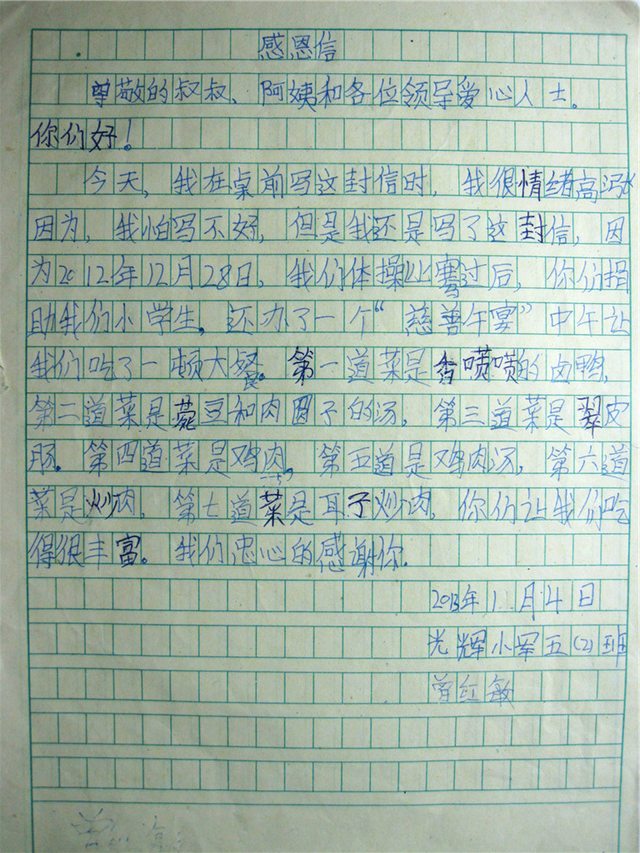 感恩信
尊敬的叔叔、阿姨和各位领导爱心人士。
你们好！
今天，我在桌前写这封信时，我很情绪高涨
因为，我怕写不好，但是我还是写了这封信，因
为2012年12月28日，我们体操比赛过后，你们捐
助我们小学生，还办了一个“慈善午宴”中午让
我们吃了一顿大餐。第一道菜是香喷喷的卤鸭，
第二道菜是豌豆和肉圆子的汤，第三道菜是翠皮
肠。第四道菜是鸡肉，第五道是鸡肉汤，第六道
菜是炒肉，第七道菜是耳子炒肉，你们让我们吃
得很丰富。我们忠心的感谢你.
2013年1.月4日
光辉小学五(2)班
曾红敏